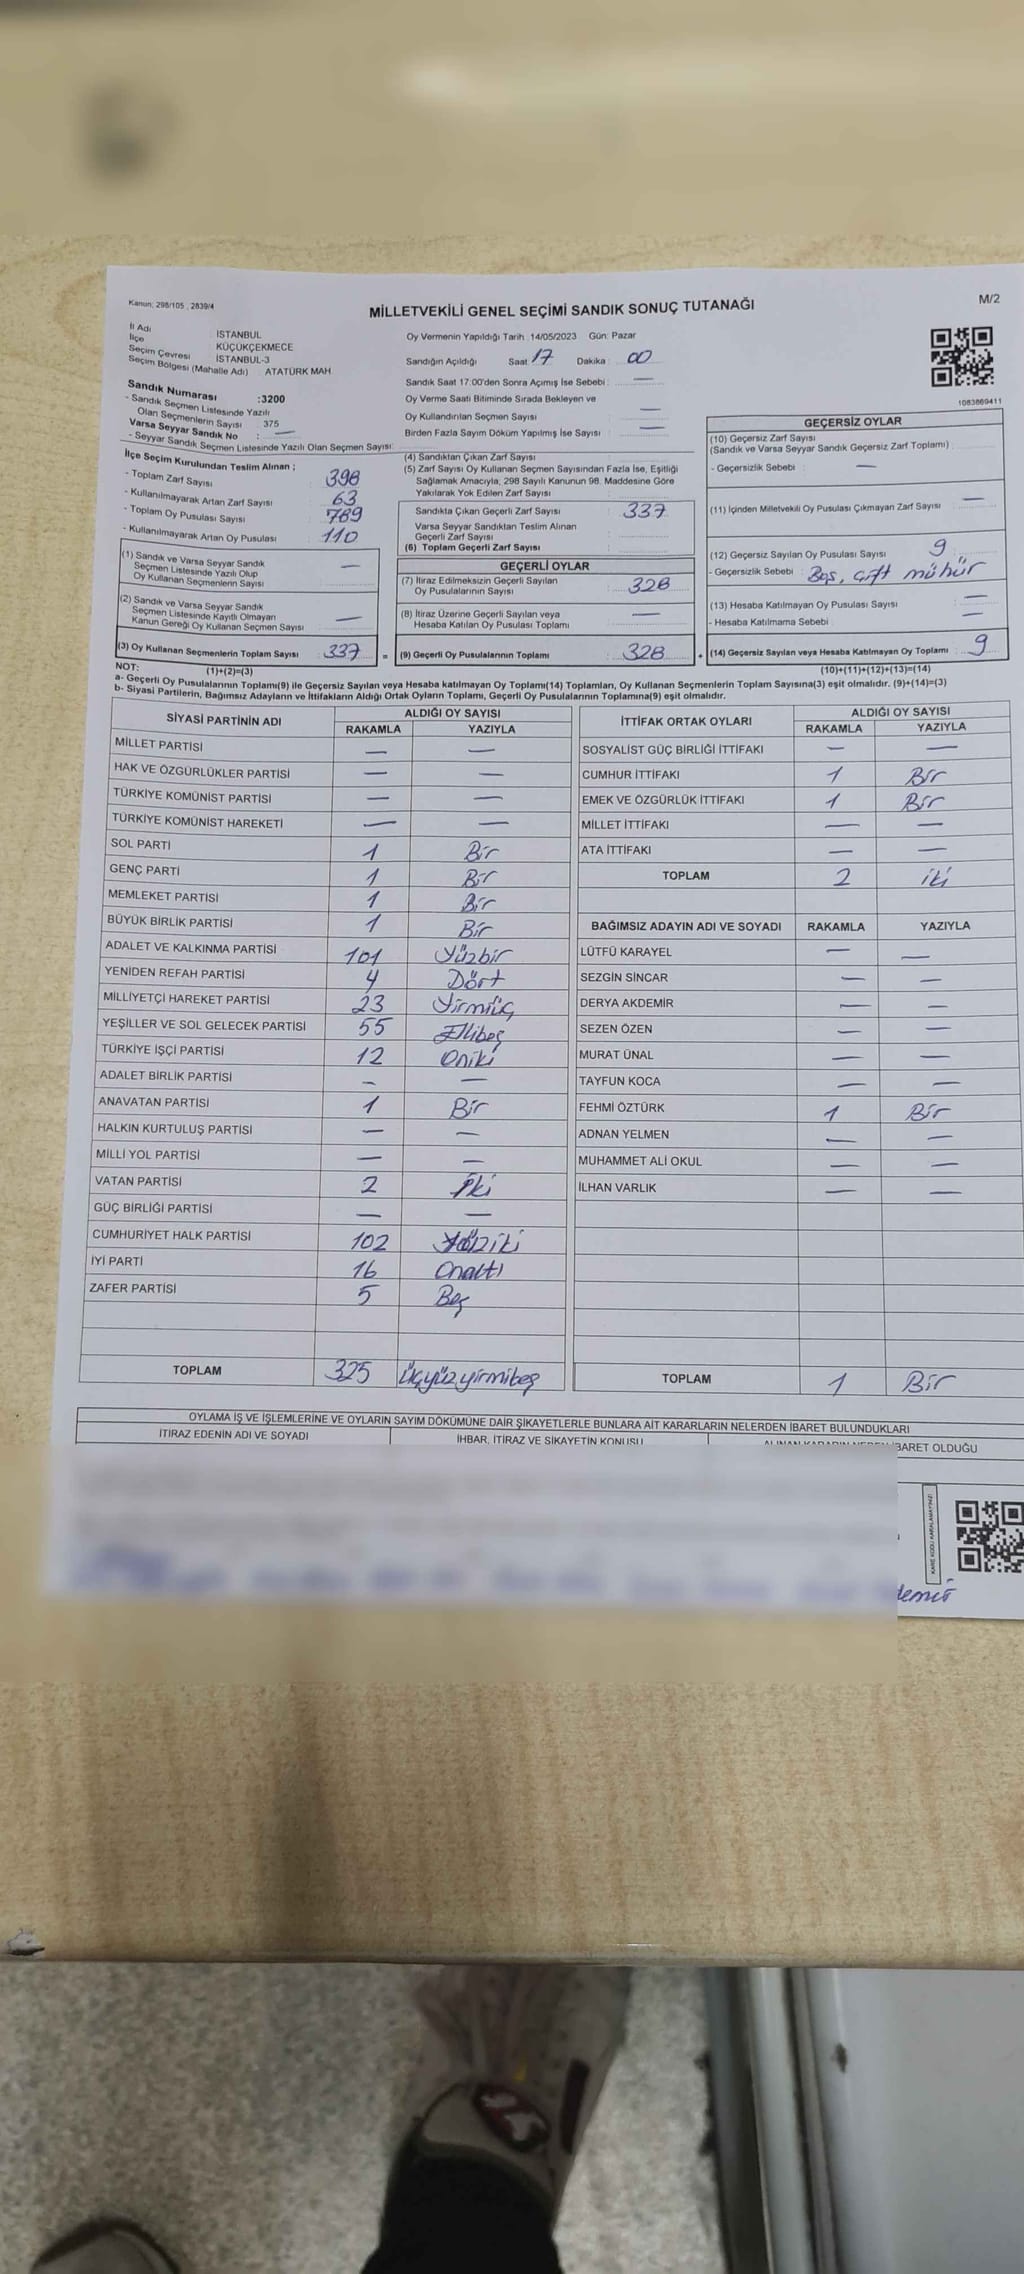 Kanun: 298/105 , 2839/4
MİLLETVEKİLİ GENEL SEÇİMİ SANDIK SONUÇ TUTANAĞI
M/2
İl Adı İSTANBUL
İlçe KÜÇÜKÇEKMECE
Seçim Çevresi İSTANBUL-3
Seçim Bölgesi (Mahalle Adı) ATATÜRK MAH.
Sandık Numarası :3200
- Sandık Seçmen Listesinde Yazılı
Olan Seçmenlerin Sayısı 375
Varsa Seyyar Sandık No : —
- Seyyar Sandık Seçmen Listesinde Yazılı Olan Seçmen Sayısı:
İlçe Seçim Kurulundan Teslim Alınan ;
- Toplam Zarf Sayısı : 398
- Kullanılmayarak Artan Zarf Sayısı : 63
- Toplam Oy Pusulası Sayısı : 789
- Kullanılmayarak Artan Oy Pusulası : 110
Oy Vermenin Yapıldığı Tarih : 14/05/2023 Gün: Pazar
Sandığın Açıldığı Saat: 17 Dakika : 00
Sandık Saat 17:00'den Sonra Açımış İse Sebebi : —
Oy Verme Saati Bitiminde Sırada Bekleyen ve
Oy Kullandırılan Seçmen Sayısı : —
Birden Fazla Sayım Döküm Yapılmış İse Sayısı : —
1083869411
(1) Sandık ve Varsa Seyyar Sandık
Seçmen Listesinde Yazılı Olup
Oy Kullanan Seçmenlerin Sayısı : —
(2) Sandık ve Varsa Seyyar Sandık
Seçmen Listesinde Kayıtlı Olmayan
Kanun Gereği Oy Kullanan Seçmen Sayısı : —
(3) Oy Kullanan Seçmenlerin Toplam Sayısı : 337 =
(4) Sandıktan Çıkan Zarf Sayısı :
(5) Zarf Sayısı Oy Kullanan Seçmen Sayısından Fazla İse, Eşitliği
Sağlamak Amacıyla, 298 Sayılı Kanunun 98. Maddesine Göre
Yakılarak Yok Edilen Zarf Sayısı :
Sandıkta Çıkan Geçerli Zarf Sayısı : 337
Varsa Seyyar Sandıktan Teslim Alınan
Geçerli Zarf Sayısı :
(6) Toplam Geçerli Zarf Sayısı :
GEÇERLİ OYLAR
(7) İtiraz Edilmeksizin Geçerli Sayılan
Oy Pusulalarının Sayısı : 328
(8) İtiraz Üzerine Geçerli Sayılan veya
Hesaba Katılan Oy Pusulası Toplamı : —
(9) Geçerli Oy Pusulalarının Toplamı : 328 +
GEÇERSİZ OYLAR
(10) Geçersiz Zarf Sayısı
(Sandık ve Varsa Seyyar Sandık Geçersiz Zarf Toplamı) :
- Geçersizlik Sebebi : —
(11) İçinden Milletvekili Oy Pusulası Çıkmayan Zarf Sayısı : —
(12) Geçersiz Sayılan Oy Pusulası Sayısı : 9
- Geçersizlik Sebebi : Boş, çift mühür
(13) Hesaba Katılmayan Oy Pusulası Sayısı : —
- Hesaba Katılmama Sebebi : —
(14) Geçersiz Sayılan veya Hesaba Katılmayan Oy Toplamı : 9
NOT: (1)+(2)=(3) (10)+(11)+(12)+(13)=(14)
a- Geçerli Oy Pusulalarının Toplamı(9) ile Geçersiz Sayılan veya Hesaba katılmayan Oy Toplamı(14) Toplamları, Oy Kullanan Seçmenlerin Toplam Sayısına(3) eşit olmalıdır. (9)+(14)=(3)
b- Siyasi Partilerin, Bağımsız Adayların ve İttifakların Aldığı Ortak Oyların Toplamı, Geçerli Oy Pusulalarının Toplamına(9) eşit olmalıdır.
SİYASİ PARTİNİN ADI ALDIĞI OY SAYISI
RAKAMLA YAZIYLA
MİLLET PARTİSİ — —
HAK VE ÖZGÜRLÜKLER PARTİSİ — —
TÜRKİYE KOMÜNİST PARTİSİ — —
TÜRKİYE KOMÜNİST HAREKETİ — —
SOL PARTİ 1 Bir
GENÇ PARTİ 1 Bir
MEMLEKET PARTİSİ 1 Bir
BÜYÜK BİRLİK PARTİSİ 1 Bir
ADALET VE KALKINMA PARTİSİ 101 Yüzbir
YENİDEN REFAH PARTİSİ 4 Dört
MİLLİYETÇİ HAREKET PARTİSİ 23 Yirmiüç
YEŞİLLER VE SOL GELECEK PARTİSİ 55 Ellibeş
TÜRKİYE İŞÇİ PARTİSİ 12 Oniki
ADALET BİRLİK PARTİSİ — —
ANAVATAN PARTİSİ 1 Bir
HALKIN KURTULUŞ PARTİSİ — —
MİLLİ YOL PARTİSİ — —
VATAN PARTİSİ 2 İki
GÜÇ BİRLİĞİ PARTİSİ — —
CUMHURİYET HALK PARTİSİ 102 Yüziki
İYİ PARTİ 16 Onaltı
ZAFER PARTİSİ 5 Beş
TOPLAM 325 Üçyüzyirmibeş
İTTİFAK ORTAK OYLARI ALDIĞI OY SAYISI
RAKAMLA YAZIYLA
SOSYALİST GÜÇ BİRLİĞİ İTTİFAKI — —
CUMHUR İTTİFAKI 1 Bir
EMEK VE ÖZGÜRLÜK İTTİFAKI 1 Bir
MİLLET İTTİFAKI — —
ATA İTTİFAKI — —
TOPLAM 2 iki
BAĞIMSIZ ADAYIN ADI VE SOYADI RAKAMLA YAZIYLA
LÜTFÜ KARAYEL — —
SEZGİN SİNCAR — —
DERYA AKDEMİR — —
SEZEN ÖZEN — —
MURAT ÜNAL — —
TAYFUN KOCA — —
FEHMİ ÖZTÜRK 1 Bir
ADNAN YELMEN — —
MUHAMMET ALİ OKUL — —
İLHAN VARLIK — —
TOPLAM 1 Bir
OYLAMA İŞ VE İŞLEMLERİNE VE OYLARIN SAYIM DÖKÜMÜNE DAİR ŞİKAYETLERLE BUNLARA AİT KARARLARIN NELERDEN İBARET BULUNDUKLARI
İTİRAZ EDENİN ADI VE SOYADI İHBAR, İTİRAZ VE ŞİKAYETİN KONUSU ALINAN KARARIN NEDEN İBARET OLDUĞU
KARE KODU KARALAMAYINIZ!
demir